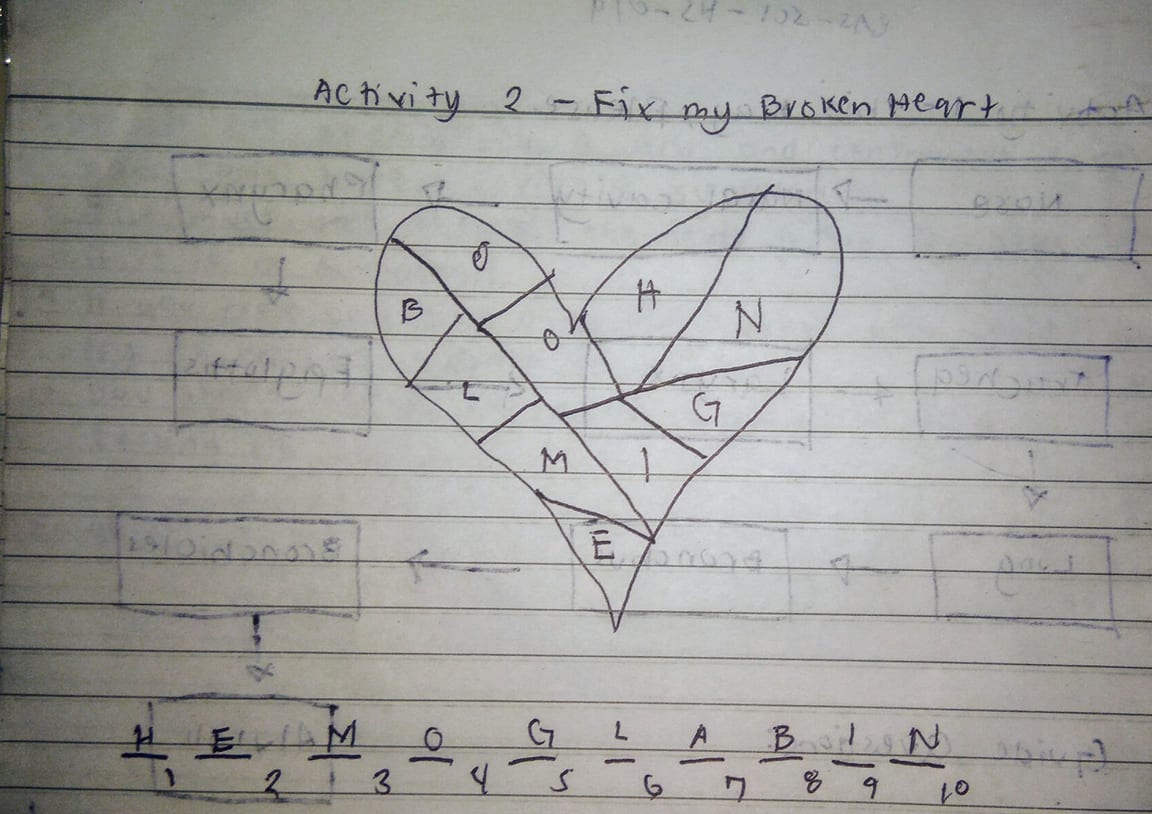 Activity 2 - Fix my Broken Heart
O
H
B
N
O
L
G
M
I
E
H E M O G L A B I N
1 2 3 4 5 6 7 8 9 10